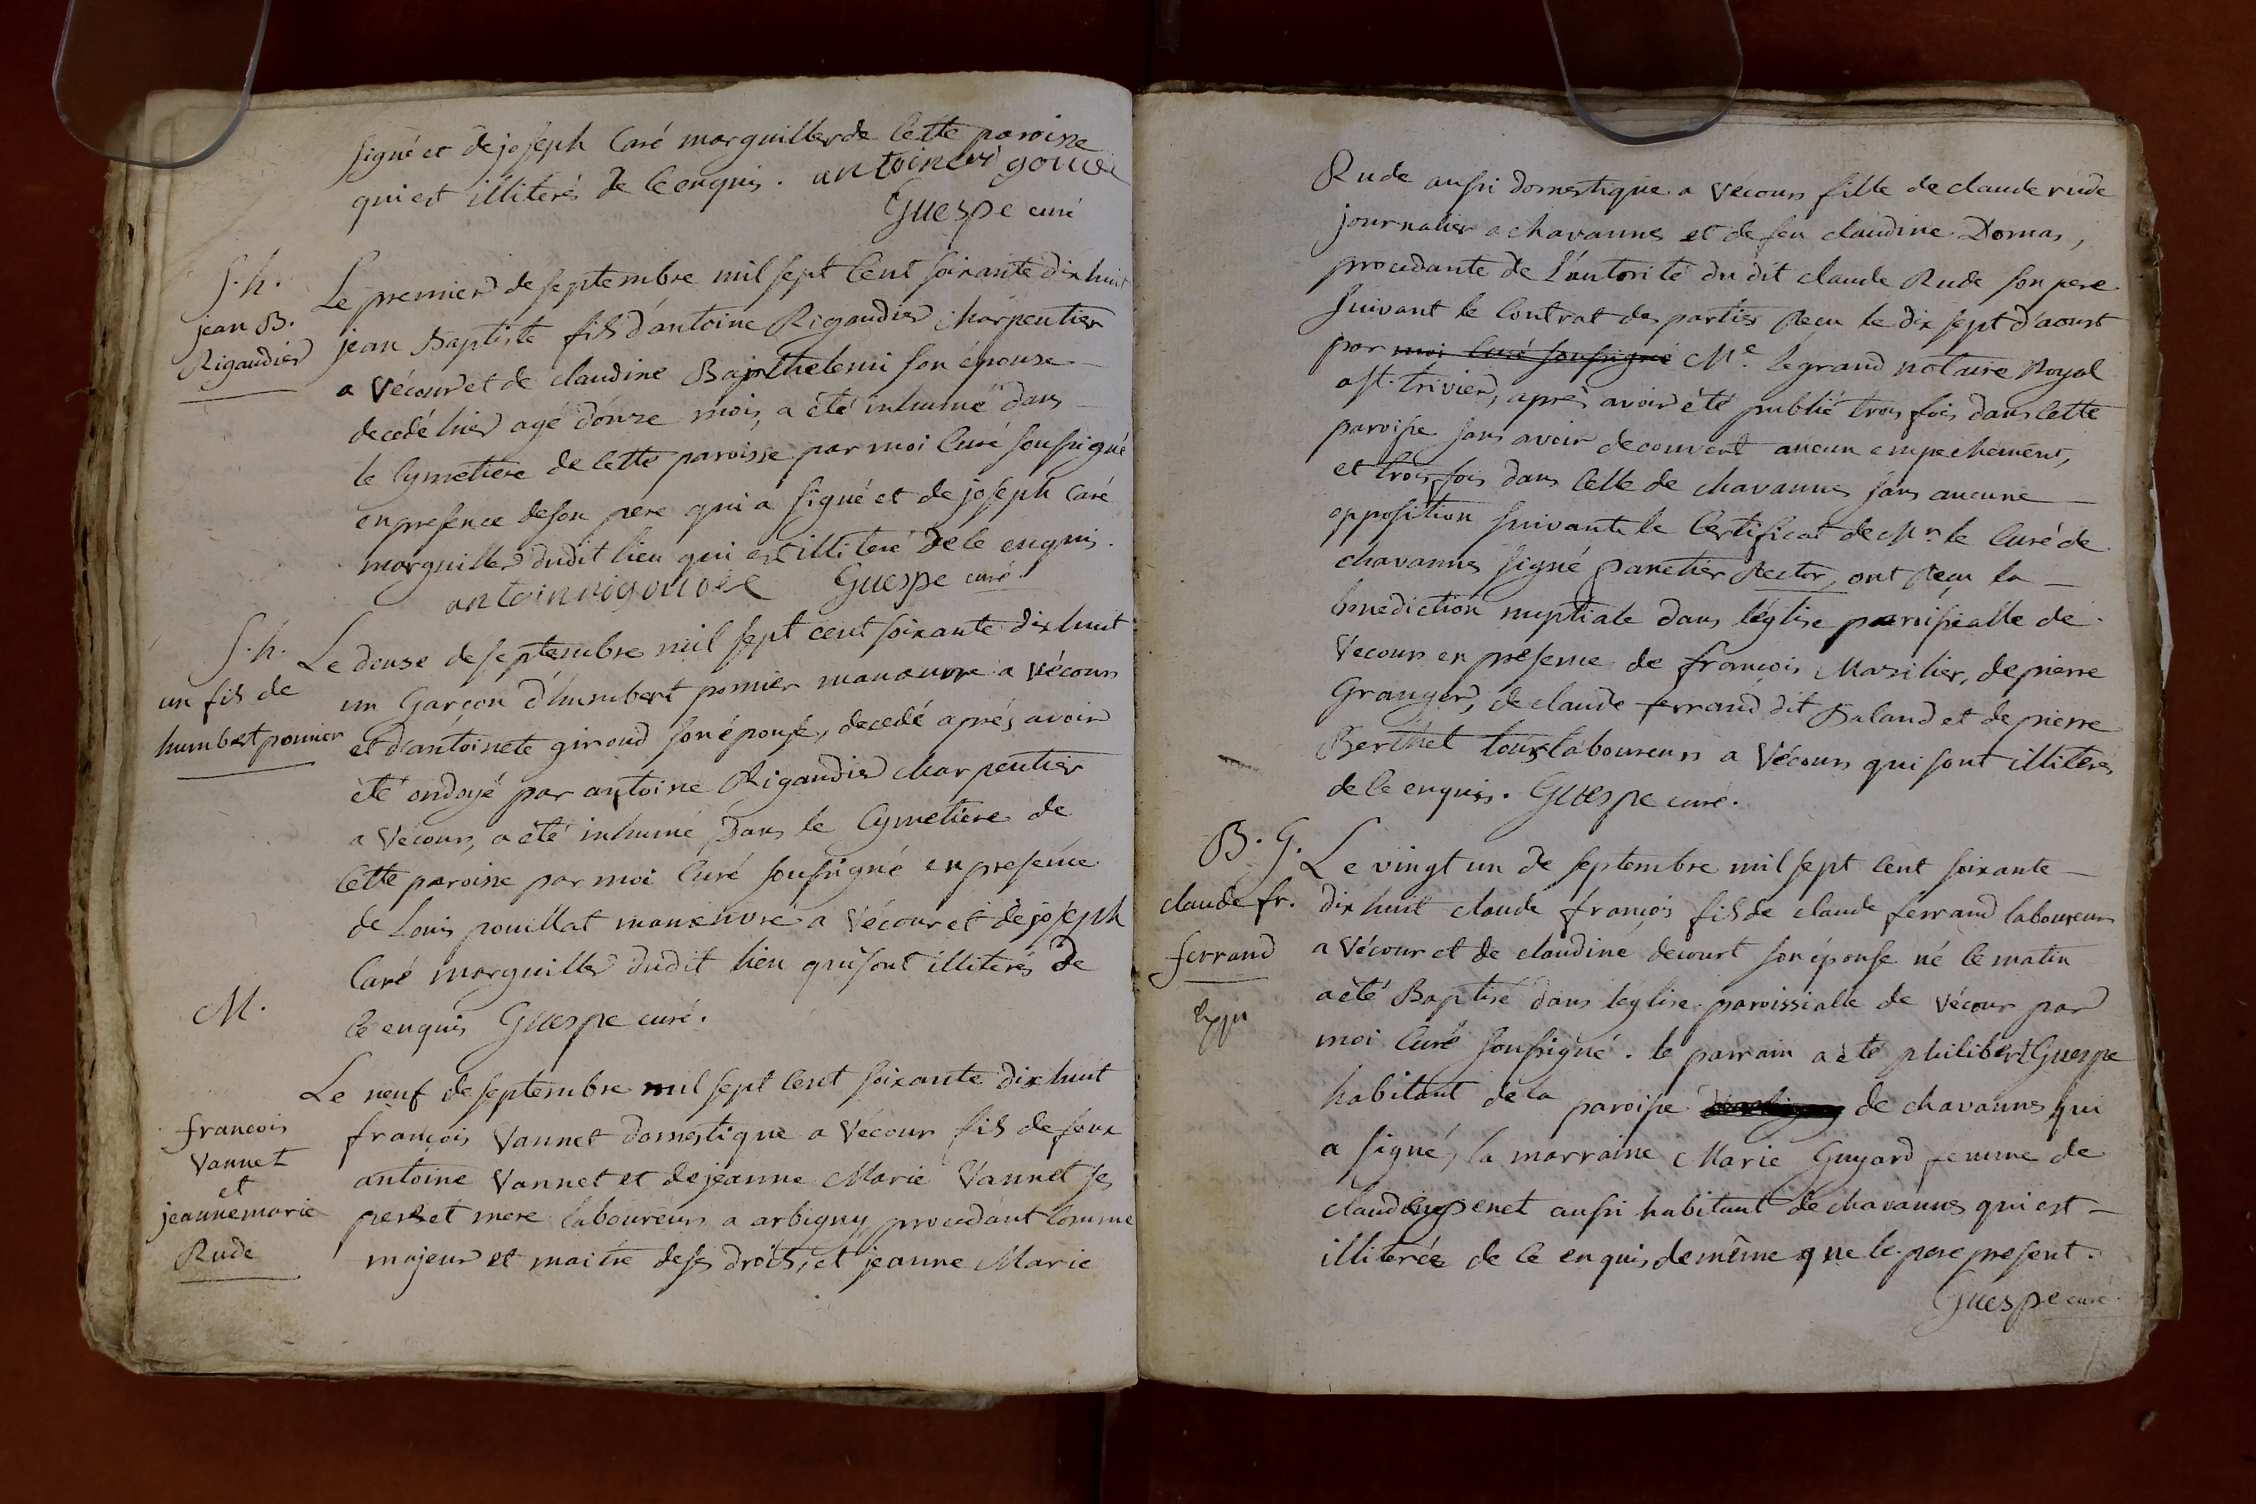 signé et de joseph Caré marguiller de Cette paroisse
qui est illiterés de Ce enquis. antoine rigoudié
Guespe curé
S. h.
jean B.
Rigaudier
Le premier de septembre mil sept Cent soixante dix huit
jean Baptiste fils d'antoine Rigaudier charpentier
a Vécour et de claudine Barthelemi son épouse
decedé hier agé d'onze mois, a été inhumé dans
le Cymetiere de Cette paroisse par moi Curé soussigné
en presence de son pere qui a signé et de joseph Caré
marguiller dudit lieu qui est illiteré de Ce enquis.
Guespe curé
S. h.
un fils de
humbert ponnier
Le douse de septembre mil sept cent soixante dix huit
un Garçon d'humbert ponnier manœuvre a Vécours
et d'antoinete giroud son épouse, decedé aprés avoir
été ondoyé par antoine Rigaudier charpentier
a Vécour, a été inhumé dans le Cymetiere de
Cette paroisse par moi Curé soussigné en presence
de Louis pouillat manœuvre a Vécour et de joseph
Caré marguiller dudit lieu qui sont illiterés de
Ce enquis Guespe curé.
M.
francois
Vannet
et
jeanne marie
Rude
Le neuf de septembre mil sept Cent soixante dix huit
françois Vannet domestique a Vécour fils de feux
antoine Vannet et de jeanne Marie Vannet ses
pere et mere laboureurs a arbigny, procedant Comme
majeur et maitre de ses droits, et jeanne Marie
Rude aussi domestique a Vécours fille de claude rude
journalier a chavannes et de feu claudine Domas,
procedante de L'autorité du dit claude Rude son pere
suivant le Contrat des parties Reçu le dix sept d'aoust
par moi Curé soussigné Me. Legrand notaire Royal
a st. trivier, aprés avoir été publié trois fois dans Cette
paroisse sans avoir decouvert aucun empechement,
et trois fois dans Celle de chavannes sans aucune
opposition suivante le Certificat de Mr. le Curé de
chavannes signé panetier Rector, ont Reçu la
benediction nuptiale dans l'église paroissialle de
Vecours en presence de françois Marilier, de pierre
Granger, de claude ferrand dit Baland et de pierre
Berthet tous laboureurs a Vécours qui sont illiterés
de Ce enquis. Guespe curé.
B. G.
claude fr.
ferrand
Le vingt un de septembre mil sept Cent soixante
dix huit claude françois fils de claude ferrand laboureur
a Vécour et de claudine decourt son épouse né Ce matin
a été Baptisé dans l'église paroissialle de Vécour par
moi Curé soussigné. le parrain a été philibert Guespe
habitant de la paroisse de chavannes qui
a signé, la marraine Marie Guyard femme de
claude penet aussi habitant de chavannes qui est
illiterée de Ce enquis de même que le pere present.
Guespe curé.